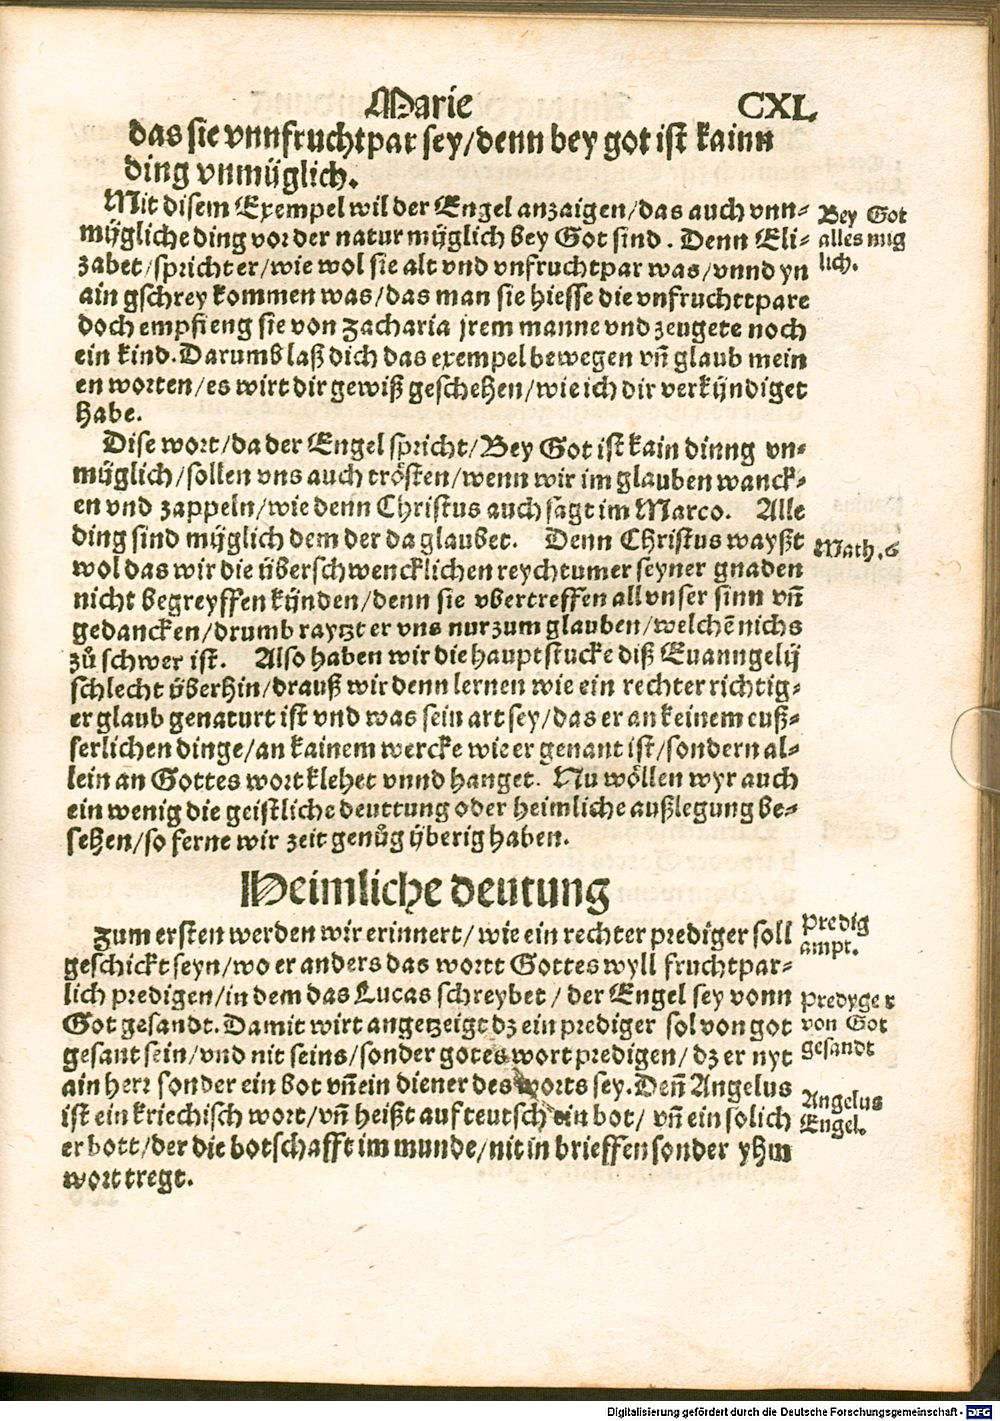 Marie CXL
das sie vnnfruchtpar sey/denn bey got ist kainn
ding vnmüglich.
Mit disem Exempel wil der Engel anzaigen/das auch vnn-
mügliche ding vor der natur müglich bey Got sind. Denn Eli-
zabet/spricht er/wie wol sie alt vnd vnfruchtpar was/vnnd yn
ain gschrey kommen was/das man sie hiesse die vnfruchttpare
doch empfieng sie von Zacharia jrem manne vnd zeugete noch
ein kind. Darumb laß dich das exempel bewegen vñ glaub mein
en worten/es wirt dir gewiß geschehen/wie ich dir verkündiget
habe.
Bey Got
alles mug
lich.
Dise wort/da der Engel spricht/Bey Got ist kain dinng vn-
müglich/sollen vns auch trösten/wenn wir im glauben wanck-
en vnd zappeln/wie denn Christus auch sagt im Marco. Alle
ding sind müglich dem der da glaubet. Denn Christus wayßt
wol das wir die überschwencklichen reychtumer seyner gnaden
nicht begreyffen künden/denn sie vbertreffen all vnser sinn vñ
gedancken/drumb raytzt er vns nur zum glauben/welchē nichs
zů schwer ist. Also haben wir die hauptstucke diß Euanngelij
schlecht überhin/drauß wir denn lernen wie ein rechter richtig-
er glaub genaturt ist vnd was sein art sey/das er an keinem euß-
serlichen dinge/an kainem wercke wie er genant ist/sondern al-
lein an Gottes wort klebet vnnd hanget. Nu wöllen wyr auch
ein wenig die geistliche deuttung oder heimliche außlegung be-
sehen/so ferne wir zeit genůg überig haben.
Math.6
Heimliche deutung
Zum ersten werden wir erinnert/wie ein rechter prediger soll
geschickt seyn/wo er anders das wortt Gottes wyll fruchtpar-
lich predigen/in dem das Lucas schreybet/der Engel sey vonn
Got gesandt. Damit wirt angetzeigt dz ein prediger sol von got
gesant sein/vnd nit seins/sonder gotes wort predigen/dz er nyt
ain herr sonder ein bot vñ ein diener des worts sey. Deñ Angelus
ist ein kriechisch wort/vñ heißt auf teutsch ein bot/vñ ein solich
er bott/der die botschafft im munde/nit in brieffen sonder yhm
wort tregt.
Predig
ampt.
Predyger
von Got
gesandt
Angelus
Engel.
Digitalisierung gefördert durch die Deutsche Forschungsgemeinschaft - DFG